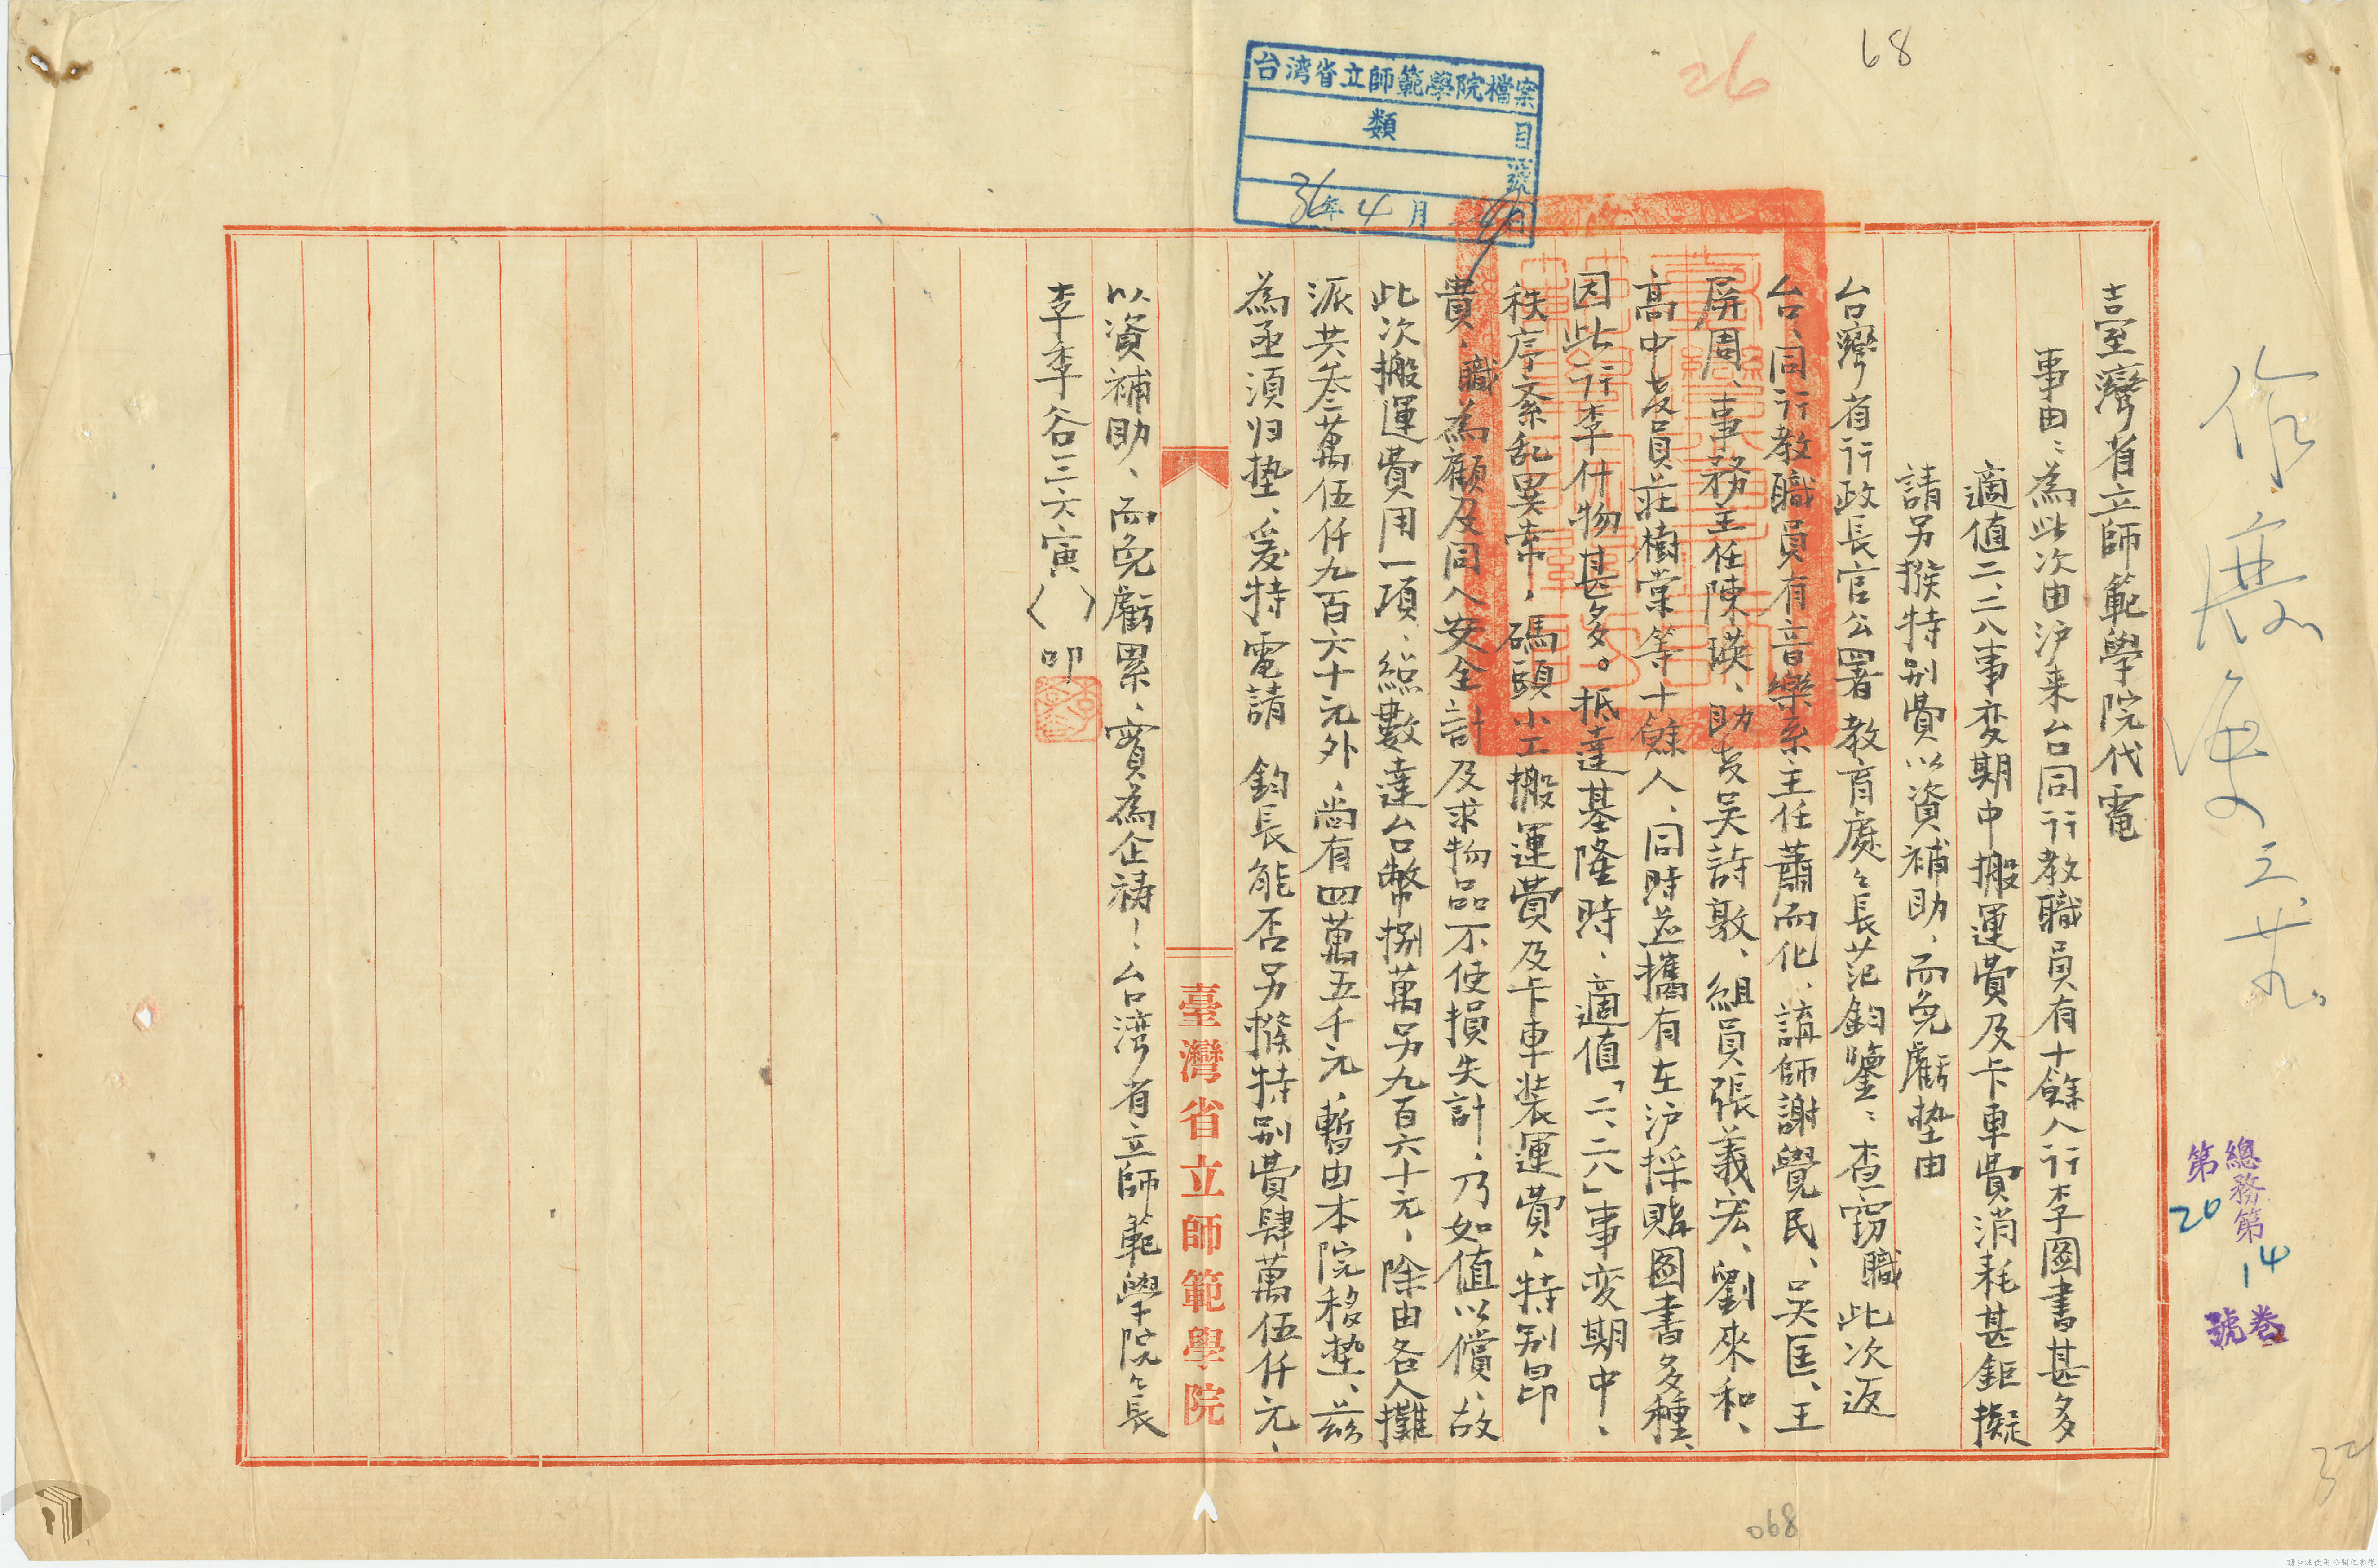 68
26
台湾省立師範學院檔案
類 目
號
36年4月 日
臺灣省立師範學院代電
事由：為此次由沪来台同行教職員有十餘人行李圖書甚多
適值二、二八事変期中搬運費及卡車費消耗甚鉅擬
請另撥特别費以資補助、而免虧墊由
台灣省行政長官公署教育處々長范鈞鑒：查竊職此次返
台、同行教職員有音樂系主任蕭而化、講師謝覺民、吴匡、王
屏周、事務主任陳瑛、助教吴詩敦、組員張義宏、劉來和、
高中教員莊樹棠等十餘人、同時並攜有在沪採購圖書多種、
因此行李什物甚多。抵達基隆時、適值「二、二八」事変期中、
秩序紊乱異常，碼頭小工搬運費及卡車装運費、特别昂
貴、職為顧及同人安全計及求物品不使損失計、乃如值以償、故
此次搬運費用一項、總數達台幣捌萬另九百六十元，除由各人攤
派共叁萬伍仟九百六十元外，尚有四萬五千元，暫由本院移墊、兹
為亟須归墊、爰特電請 鈞長能否另撥特别費肆萬伍仟元、
以資補助、而免虧累、實為企祷！台湾省立師範學院々長
李季谷三六寅〈 〉叩
臺灣省立師範學院
總務第14卷
第20號
068
請合法使用公開之影像